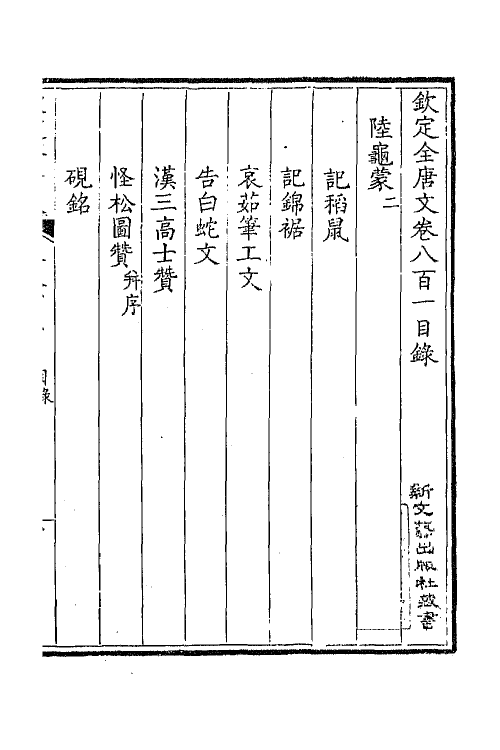 欽定全唐文卷八百一目錄
陸龜蒙二
記稻鼠
記錦裾
哀茹筆工文
告白蛇文
漢三高士贊
怪松圖贊并序
硯銘
目錄
新文藝出版社藏書